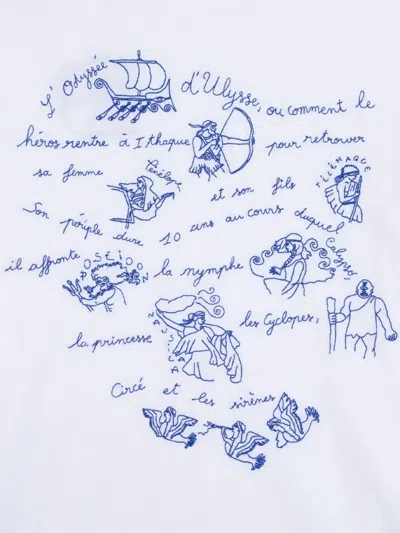 L'Odyssée d'Ulysse, ou comment le
héros rentre à Ithaque pour retrouver
sa femme Pénélope et son fils TÉLÉMAQUE
Son périple dure 10 ans au cours duquel
il affronte POSEIDON la nymphe Calypso,
la princesse NAUSICAA les Cyclopes,
Circé et les sirènes